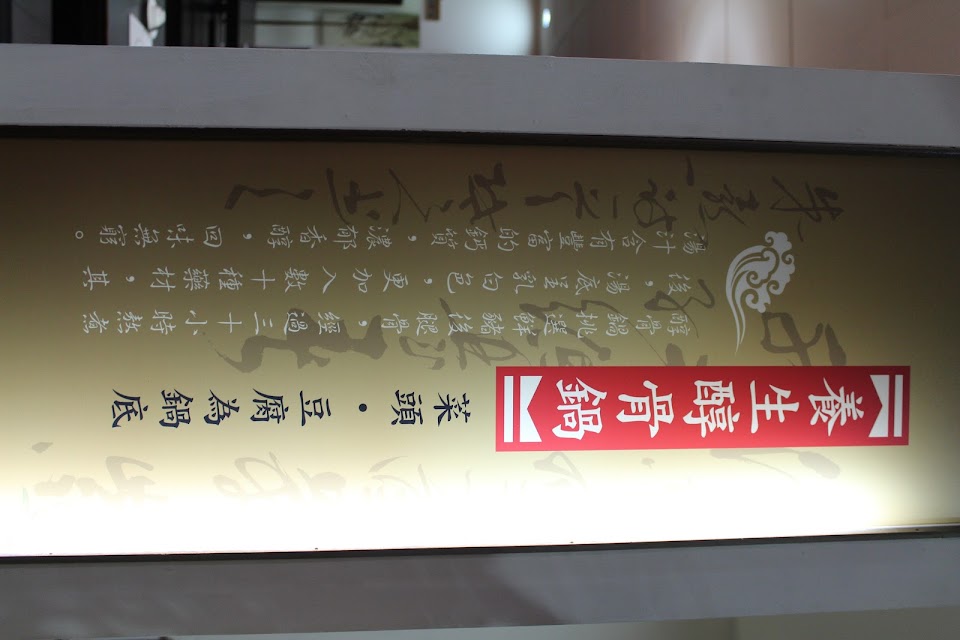 養生醇骨鍋
菜頭・豆腐為鍋底
醇骨鍋挑選鮮豬後腿骨，經過三十小時熬煮
後，湯底呈乳白色，更加入數十種藥材，其
湯汁含有豐富的鈣質，濃郁香醇，回味無窮。